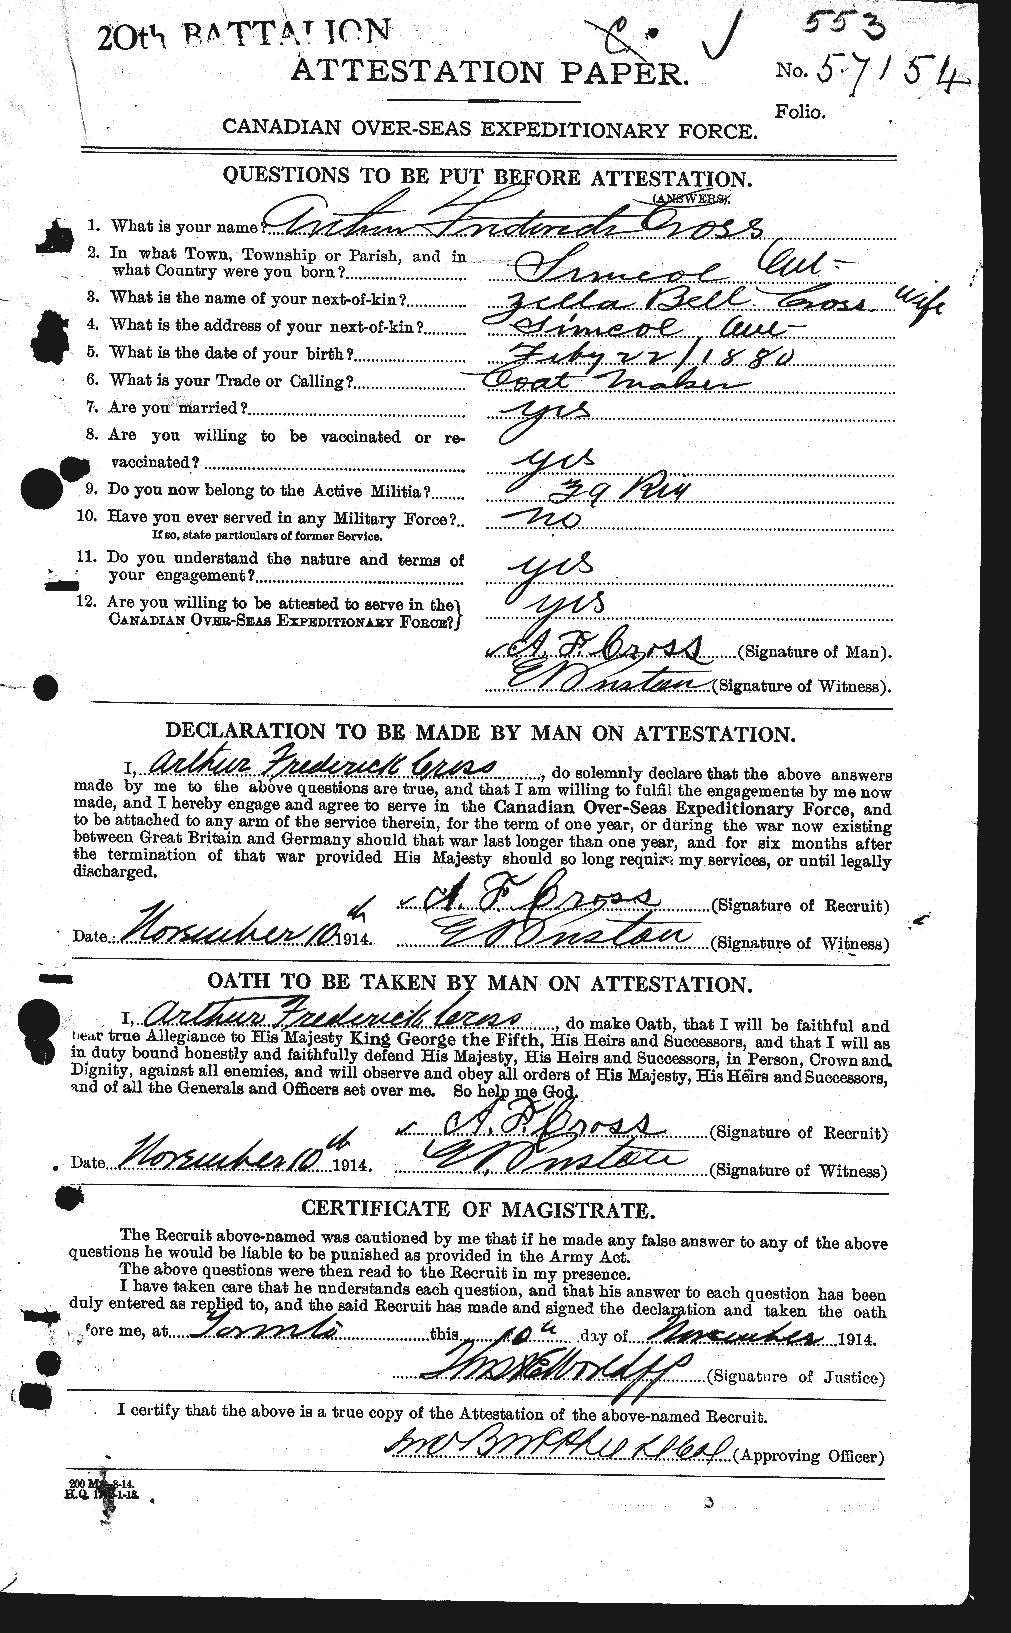 20th BATTALION
553
ATTESTATION PAPER.
No. 57154
Folio.
CANADIAN OVER-SEAS EXPEDITIONARY FORCE.
QUESTIONS TO BE PUT BEFORE ATTESTATION.
(ANSWERS).
1. What is your name? Arthur Frederick Cross
2. In what Town, Township or Parish, and in
what Country were you born? Simcoe Ont-
3. What is the name of your next-of-kin? Zella Bell Cross Wife
4. What is the address of your next-of-kin? Simcoe, Ont-
5. What is the date of your birth? Feby 22/1880
6. What is your Trade or Calling? Coat Maker
7. Are you married? yes
8. Are you willing to be vaccinated or re-
vaccinated? yes
9. Do you now belong to the Active Militia? 39
10. Have you ever served in any Military Force? no
If so, state particulars of former Service.
11. Do you understand the nature and terms of
your engagement? yes
12. Are you willing to be attested to serve in the
CANADIAN OVER-SEAS EXPEDITIONARY FORCE? yes
A. F. Cross (Signature of Man).
(Signature of Witness).
DECLARATION TO BE MADE BY MAN ON ATTESTATION.
I, Arthur Frederick Cross, do solemnly declare that the above answers
made by me to the above questions are true, and that I am willing to fulfil the engagements by me now
made, and I hereby engage and agree to serve in the Canadian Over-Seas Expeditionary Force, and
to be attached to any arm of the service therein, for the term of one year, or during the war now existing
between Great Britain and Germany should that war last longer than one year, and for six months after
the termination of that war provided His Majesty should so long require my services, or until legally
discharged.
A. F. Cross (Signature of Recruit)
Date November 10th 1914. (Signature of Witness)
OATH TO BE TAKEN BY MAN ON ATTESTATION.
I, Arthur Frederick Cross, do make Oath, that I will be faithful and
bear true Allegiance to His Majesty King George the Fifth, His Heirs and Successors, and that I will as
in duty bound honestly and faithfully defend His Majesty, His Heirs and Successors, in Person, Crown and
Dignity, against all enemies, and will observe and obey all orders of His Majesty, His Heirs and Successors,
and of all the Generals and Officers set over me. So help me God.
A. F. Cross (Signature of Recruit)
Date November 10th 1914. (Signature of Witness)
CERTIFICATE OF MAGISTRATE.
The Recruit above-named was cautioned by me that if he made any false answer to any of the above
questions he would be liable to be punished as provided in the Army Act.
The above questions were then read to the Recruit in my presence.
I have taken care that he understands each question, and that his answer to each question has been
duly entered as replied to, and the said Recruit has made and signed the declaration and taken the oath
fore me, at Toronto this 10th day of November 1914.
(Signature of Justice)
I certify that the above is a true copy of the Attestation of the above-named Recruit.
(Approving Officer)
200 M 8-14.
H.Q.
3